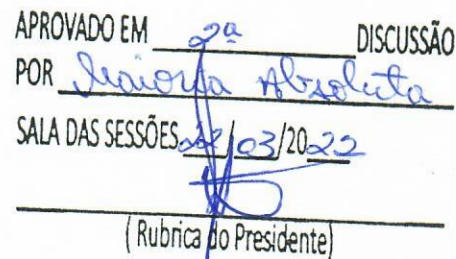 APROVADO EM 2ª DISCUSSÃO
POR Maioria Absoluta
SALA DAS SESSÕES 22/03/2022
( Rubrica do Presidente)